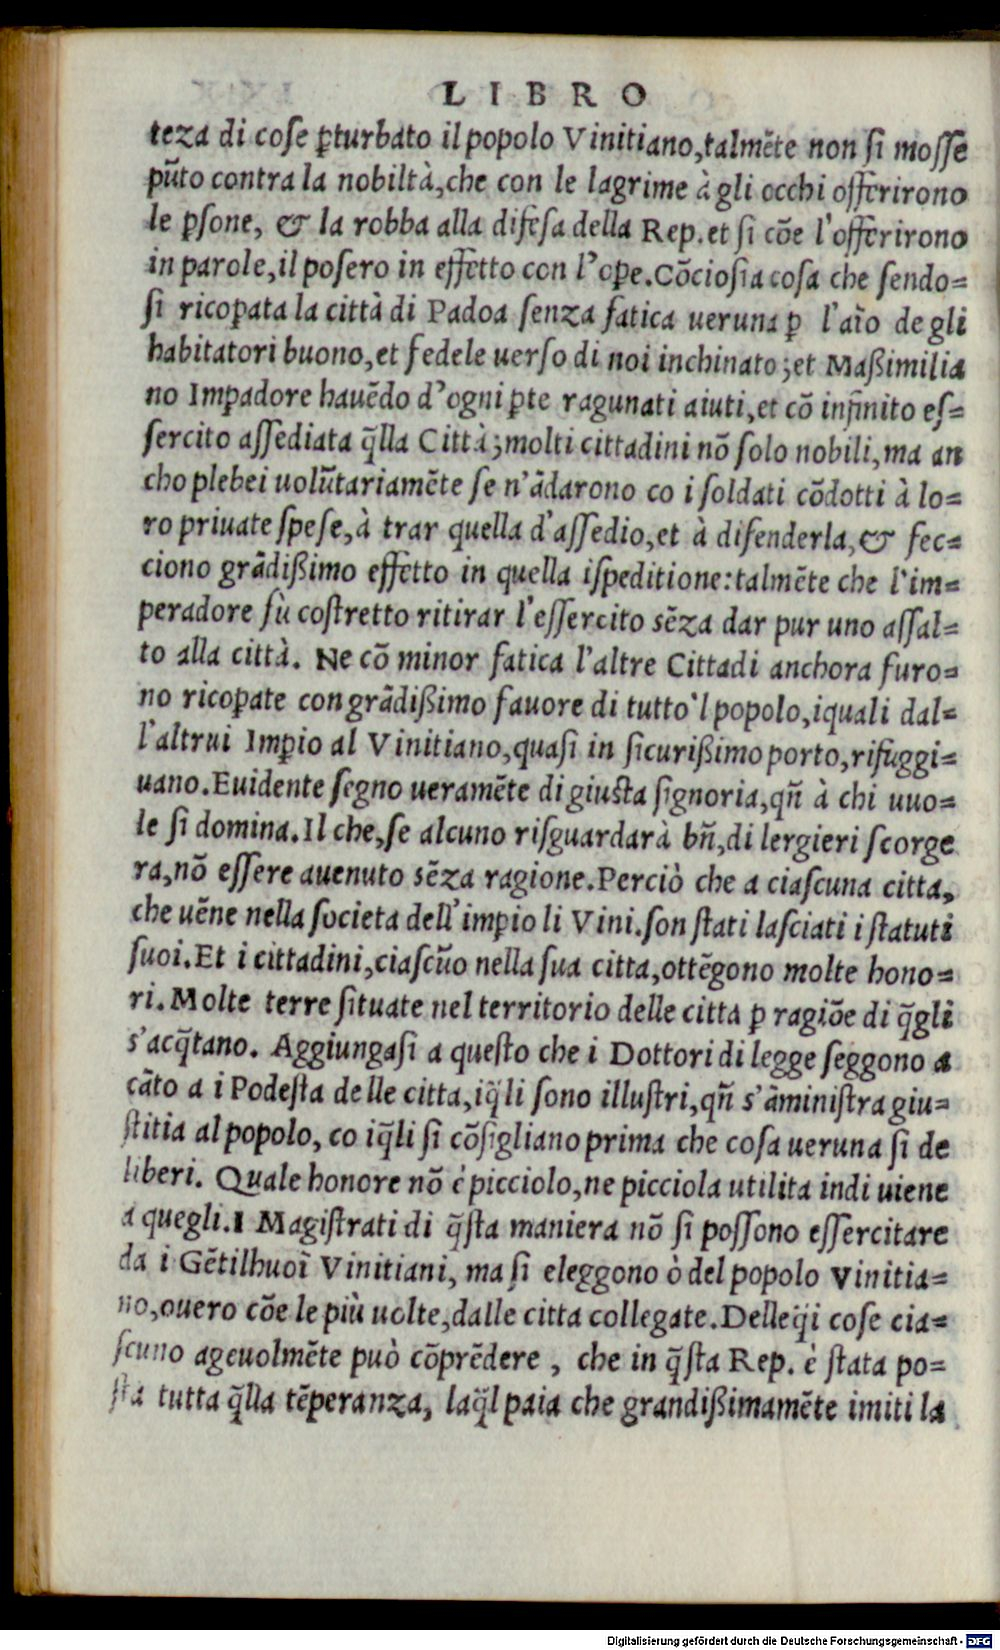 LIBRO
teza di cose ꝑturbato il popolo Vinitiano, talmẽte non ſi moſſe
pũto contra la nobiltà, che con le lagrime à gli occhi offerirono
le ꝑſone, & la robba alla difeſa della Rep. et ſi cõe l'offerirono
in parole, il poſero in effetto con l'oꝑe. Cõcioſia coſa che ſendo=
ſi ricoꝑata la città di Padoa ſenza fatica ueruna ꝑ l'aĩo de gli
habitatori buono, et fedele uerſo di noi inchinato; et Maßimilia
no Imꝑadore hauẽdo d'ogni ꝑte ragunati aiuti, et cõ infinito eſ=
ſercito aſſediata q̃lla Città; molti cittadini nõ ſolo nobili, ma an
cho plebei uolũtariamẽte ſe n'ãdarono co i ſoldati cõdotti à lo=
ro priuate ſpeſe, à trar quella d'aſſedio, et à difenderla, & fec=
ciono grãdißimo effetto in quella iſpeditione: talmẽte che l'im=
peradore fù coſtretto ritirar l'eſſercito sẽza dar pur uno aſſal=
to alla città. Ne cõ minor fatica l'altre Cittadi anchora furo=
no ricoꝑate con grãdißimo fauore di tutto'l popolo, iquali dal=
l'altrui Imꝑio al Vinitiano, quaſi in ſicurißimo porto, rifuggi=
uano. Euidente ſegno ueramẽte di giuſta ſignoria, qñ à chi uuo=
le ſi domina. Il che, ſe alcuno riſguardarà bñ, di lergieri ſcorge
ra, nõ eſſere auenuto sẽza ragione. Perciò che a ciaſcuna citta,
che uẽne nella ſocieta dell'imꝑio li Vini. ſon ſtati laſciati i ſtatuti
ſuoi. Et i cittadini, ciaſcũo nella ſua citta, ottẽgono molte hono=
ri. Molte terre ſituate nel territorio delle citta ꝑ ragiõe di q̃gli
s'acq̃tano. Aggiungaſi a queſto che i Dottori di legge ſeggono a
cãto a i Podeſta delle citta, iq̃li ſono illuſtri, qñ s'ãminiſtra giu=
ſtitia al popolo, co iq̃li ſi cõſigliano prima che coſa ueruna ſi de
liberi. Quale honore nõ è picciolo, ne picciola utilita indi uiene
a quegli. I Magiſtrati di q̃ſta maniera nõ ſi poſſono eſſercitare
da i Gẽtilhuoĩ Vinitiani, ma ſi eleggono ò del popolo Vinitia=
no, ouero cõe le più uolte, dalle citta collegate. Delleq̃i coſe cia=
ſcuno ageuolmẽte può cõprẽdere, che in q̃ſta Rep. è ſtata po=
ſta tutta q̃lla tẽperanza, laq̃l paia che grandißimamẽte imiti la
Digitalisierung gefördert durch die Deutsche Forschungsgemeinschaft - DFG